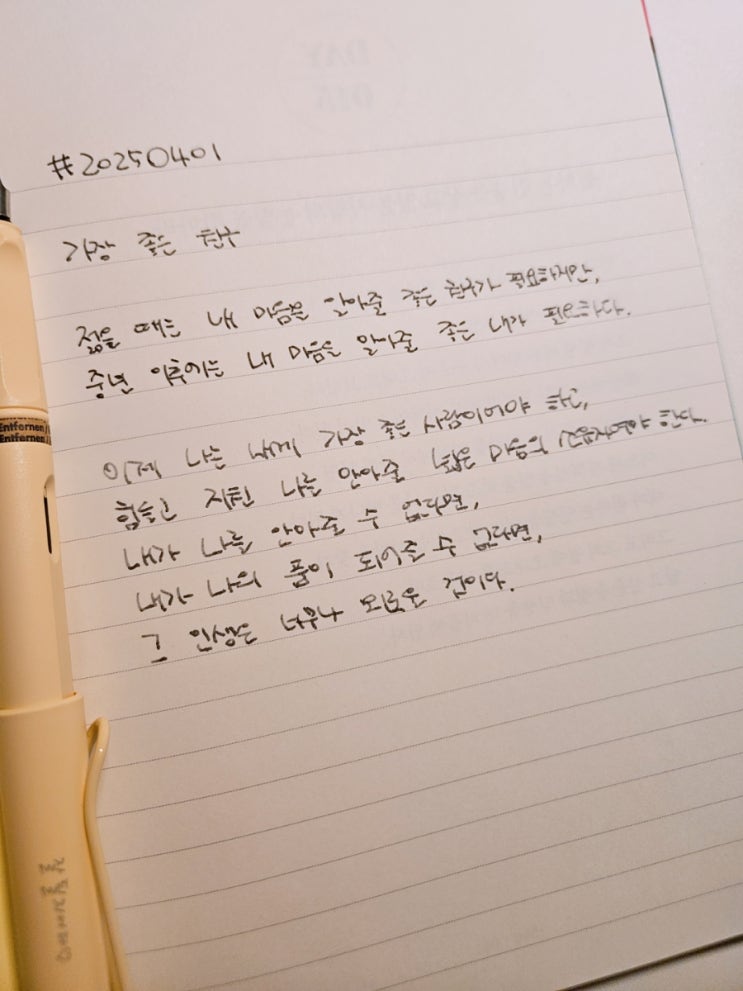 #20250401
가장 좋은 친구
젊을 때는 내 마음을 알아줄 좋은 친구가 필요하지만,
중년 이후에는 내 마음을 알아줄 좋은 내가 필요하다.
이제 나는 내게 가장 좋은 사람이어야 하고,
힘들고 지친 나를 안아줄 마음도 한다.
내가 나를 안아줄 수 없다면,
내가 나의 품이 되어줄 수 없다면,
그 인생은 너무나 외로울 것이다.
Entfernen
Entfernen